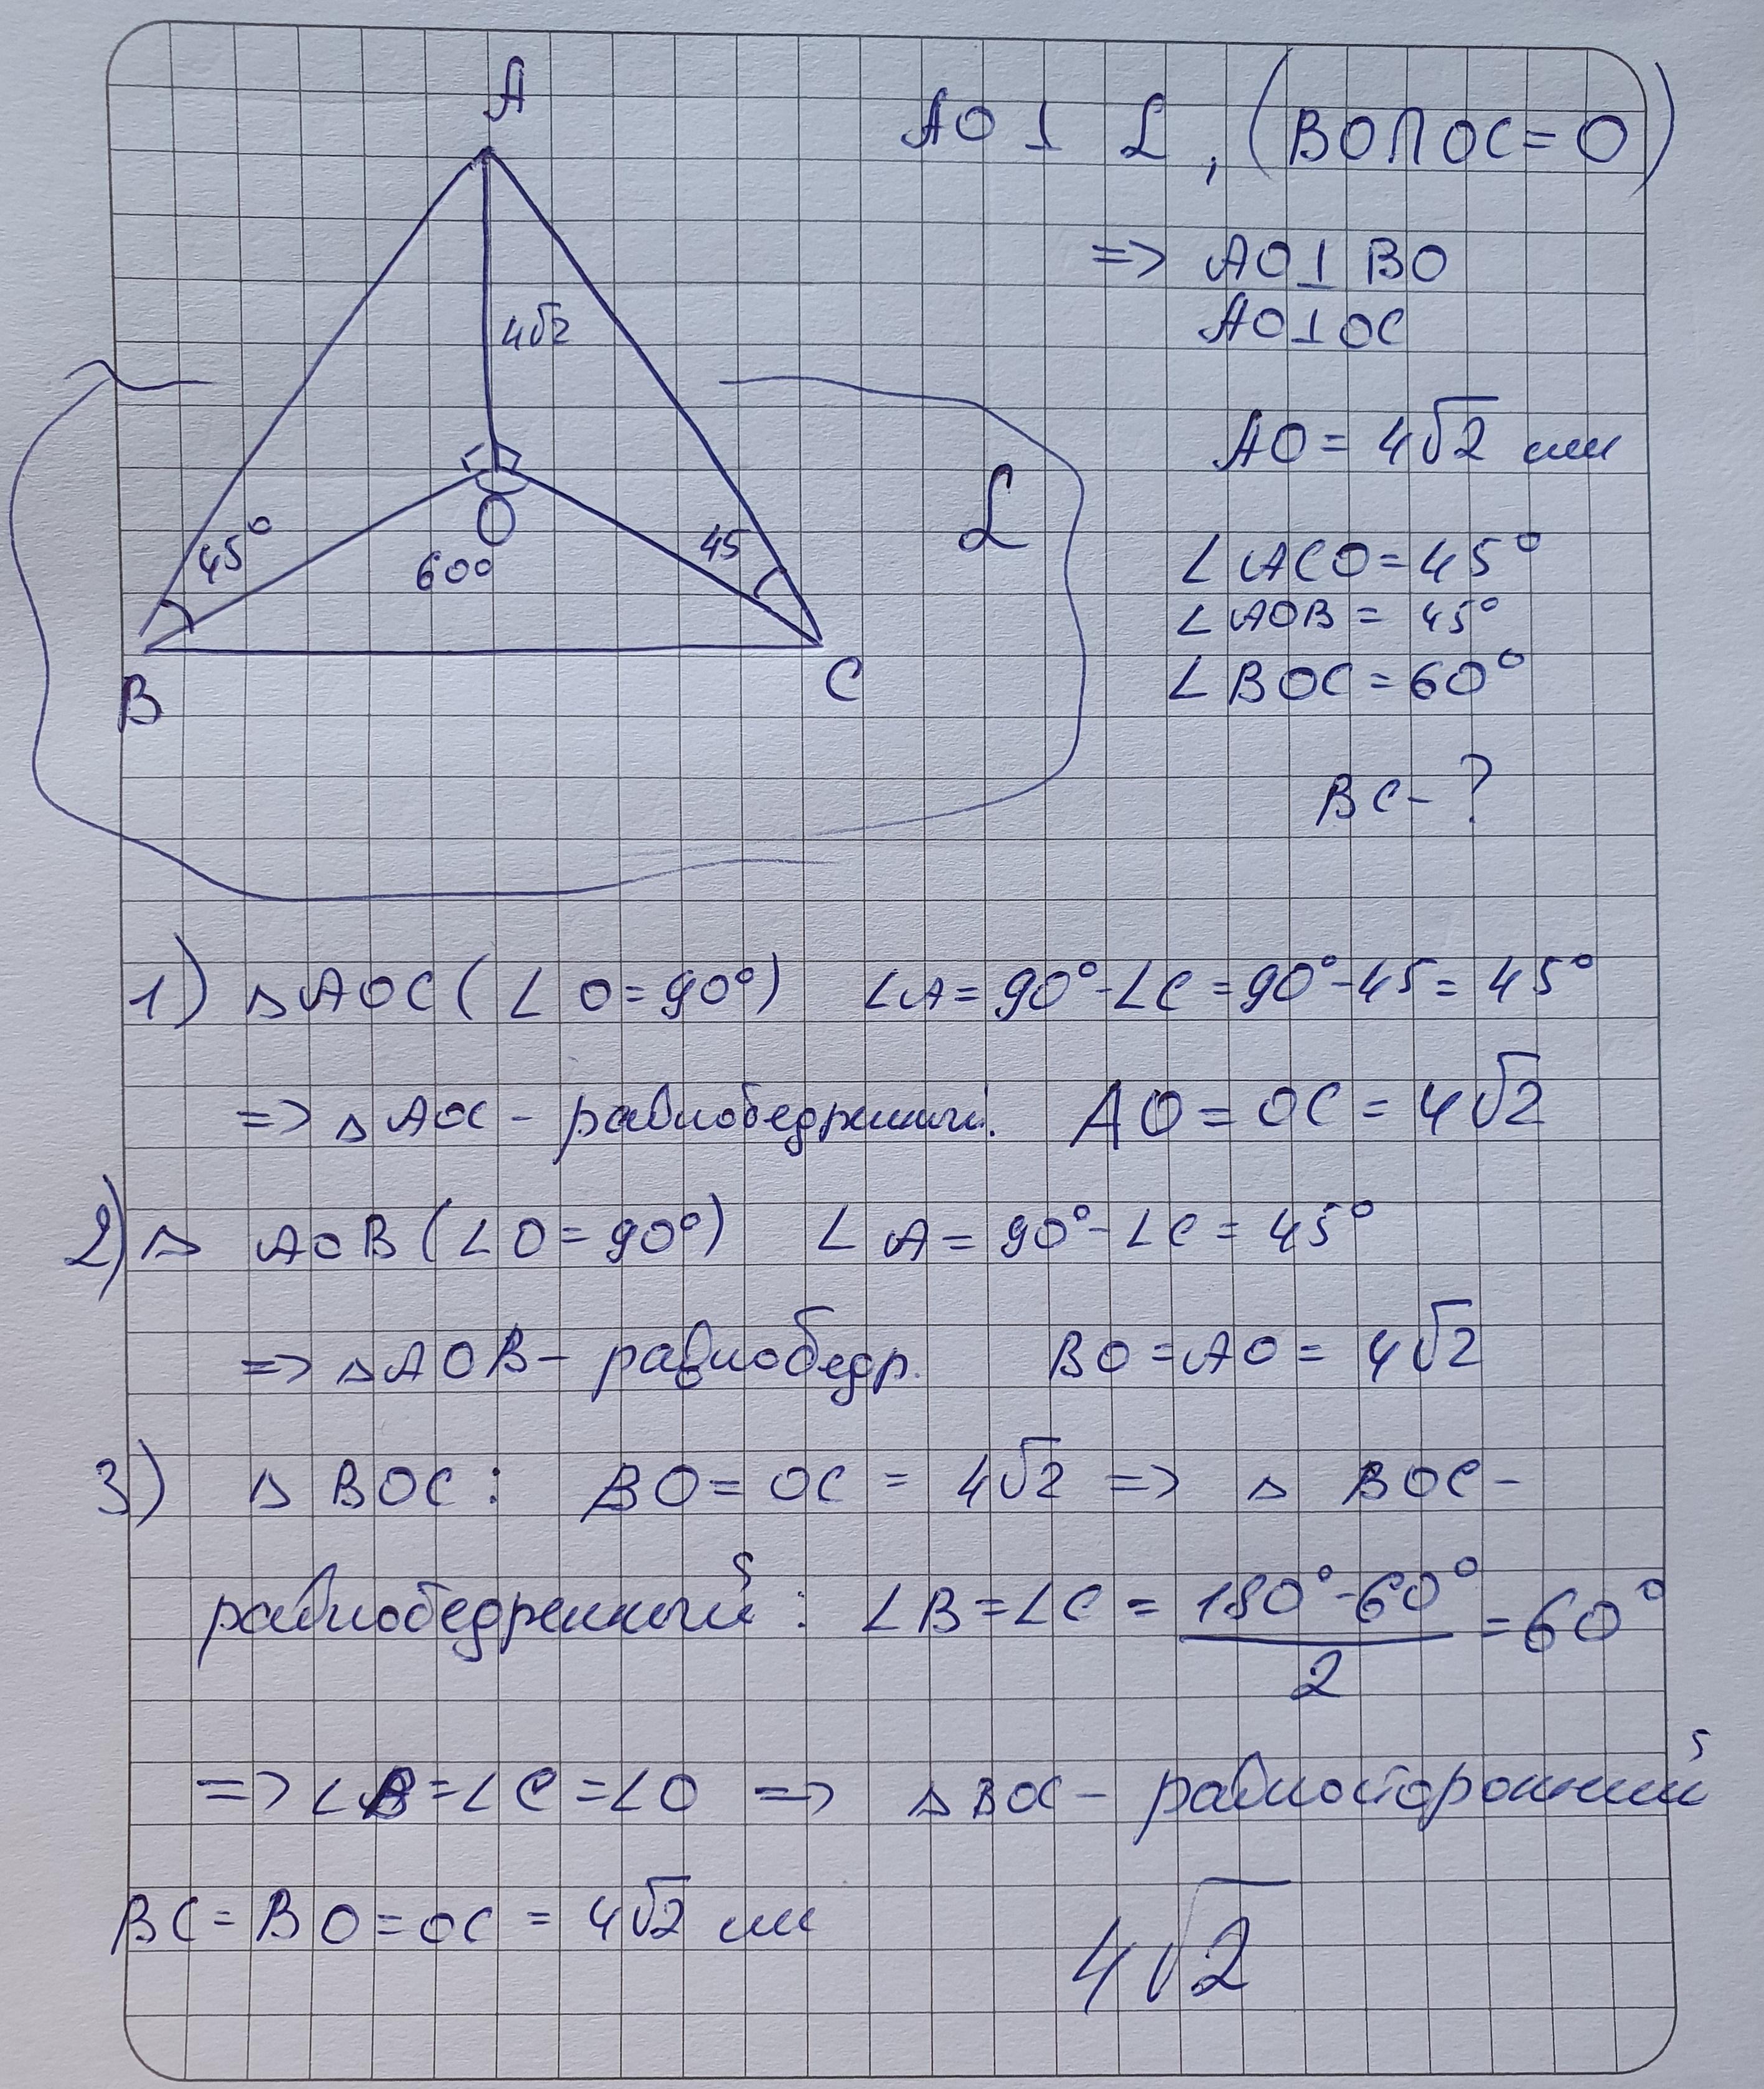 A
AO ⊥ L, (BO∩OC=O)
=> AO⊥BO
AO⊥OC
4√2
AO = 4√2 см
L
O
45°
45
60°
∠ACO=45°
∠AOB = 45°
∠BOC=60°
B
C
BC-?
1) △AOC (∠O=90°) ∠A=90°-∠C=90°-45=45°
=> △AOC - равнобедренный. AO=OC=4√2
2) △ AOB (∠O=90°) ∠A=90°-∠C=45°
=> △AOB - равнобедр. BO=AO=4√2
3) △ BOC: BO=OC=4√2 => △ BOC-
равнобедренный: ∠B=∠C= (180°-60°)/2 =60°
=> ∠B=∠C=∠O => △BOC - равносторонний
BC=BO=OC=4√2 см
4√2